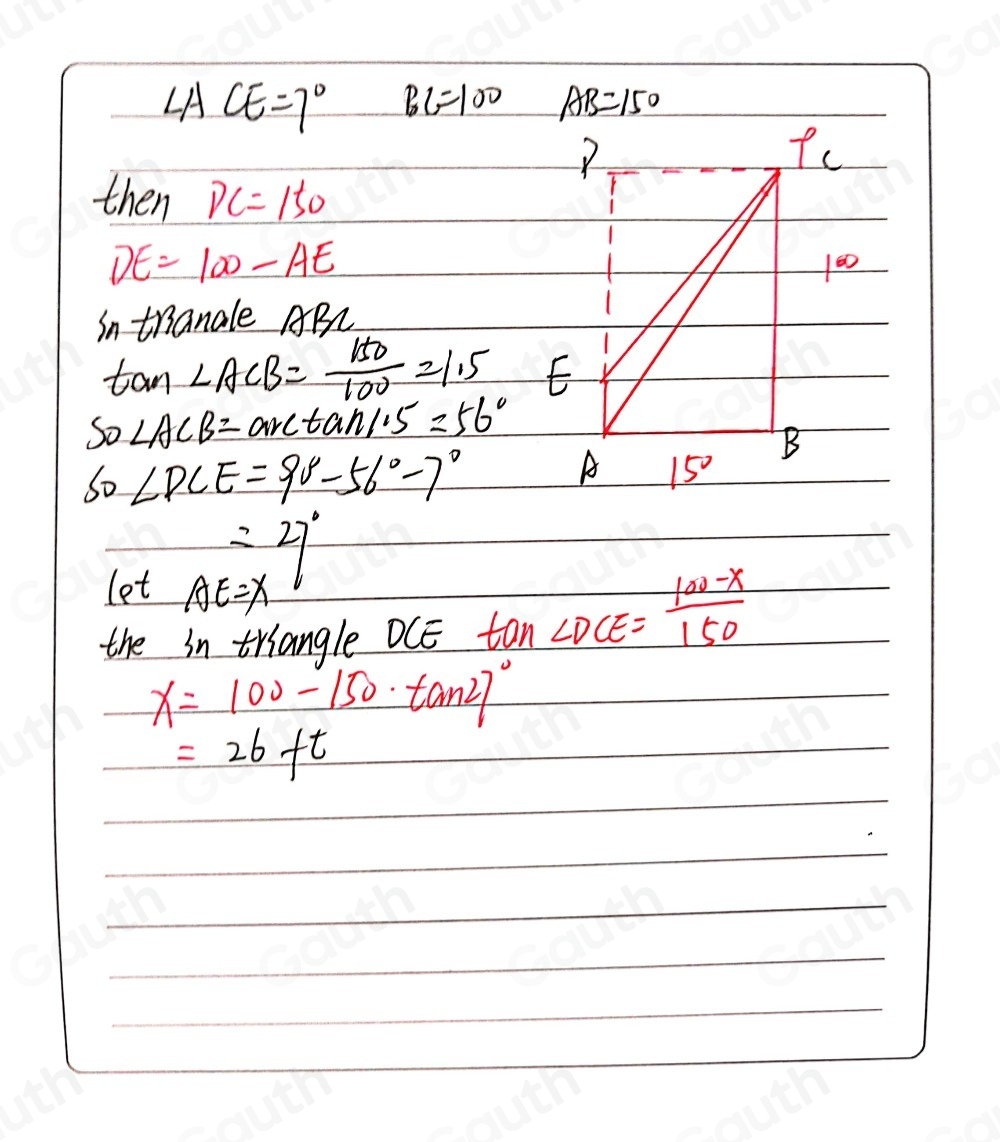 ∠ACE=7° BC=100 AB=150
D C
then DC=150
DE=100-AE
100
in trianale ABC
tan ∠ACB= 150/100 =1.5
E
So ∠ACB= arctan1.5 =56°
A 150 B
so ∠DCE=90-56°-7°
= 27°
let AE=x
the in triangle DCE tan ∠DCE= 100-x/150
x= 100-150·tan27°
= 26 ft
Gauth